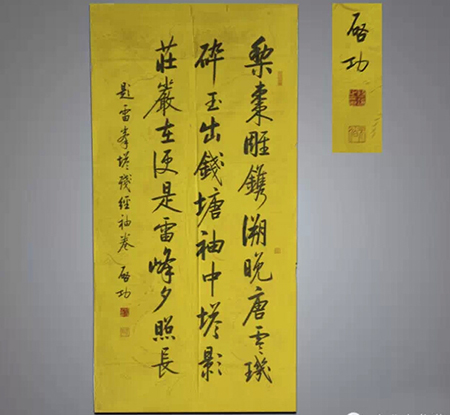 梨棗雕鐫溯晚唐零璣
碎玉出錢塘袖中塔影
莊嚴在便是雷峰夕照長
題雷峯塔殘經袖卷 啓功
啓功